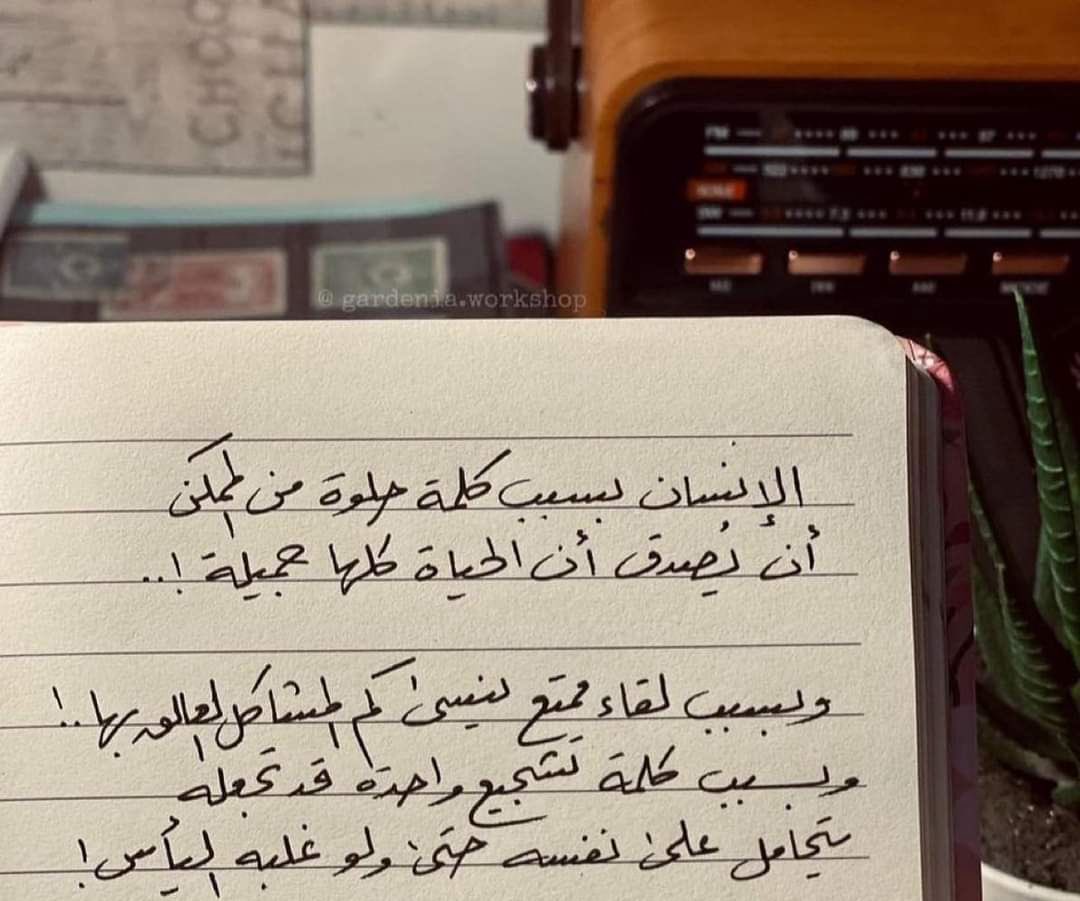 CHOC
@gardenia.workshop
FM
الإنسان بسبب كلمة حلوة من الممكن
أن يُصدق أن الحياة كلها جميلة !..
وبسبب لقاء ممتع ينسى كم المشاكل العالق بها..!
وبسبب كلمة تشجيع واحدة قد تجعله
يتحامل على نفسه حتى ولو غلبه اليأس !